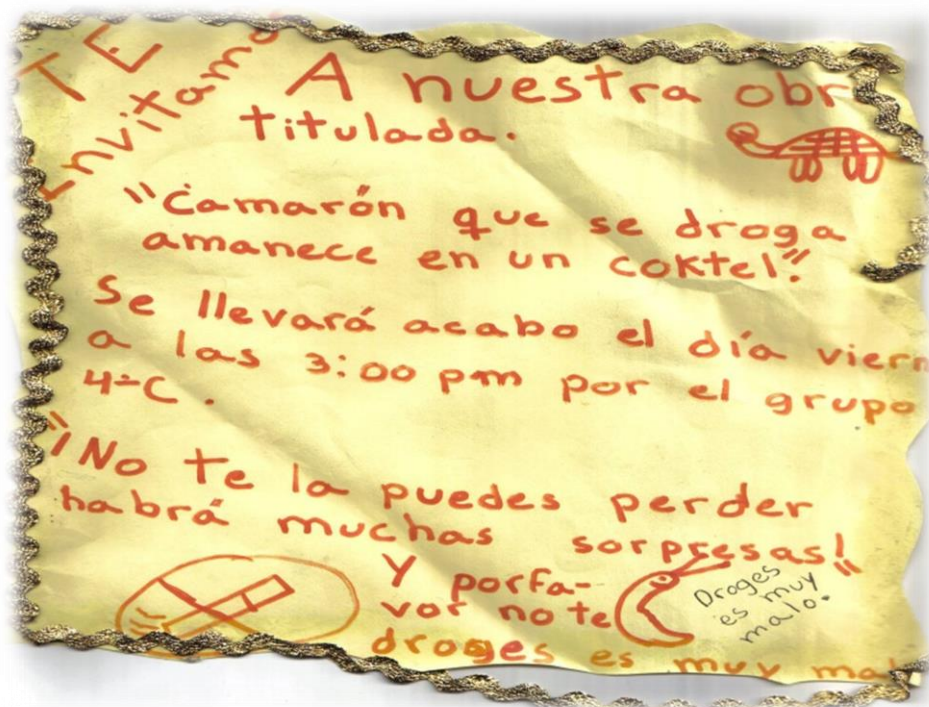 TE
Invitamos
A nuestra obr
titulada.
"Camarón que se droga
amanece en un coktel".
Se llevará acabo el día viern
a las 3:00 pm por el grupo
4ºC.
"¡No te la puedes perder
habrá muchas sorpresas!"
Y porfa-
vor no te
droges es muy mal
Droges
es muy
malo.